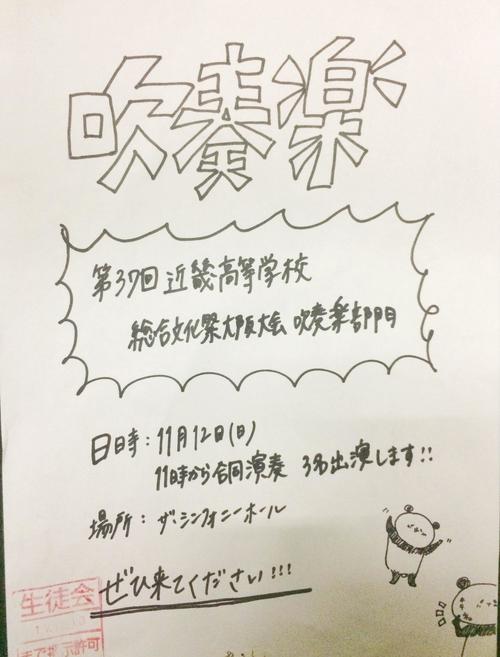 吹奏楽
第37回 近畿高等学校
総合文化祭大阪大会 吹奏楽部門
日時：11月12日(日)
11時から合同演奏 3名出演します!!
場所：ザ・シンフォニーホール
ぜひ来てください!!!
生徒会
まで掲示許可